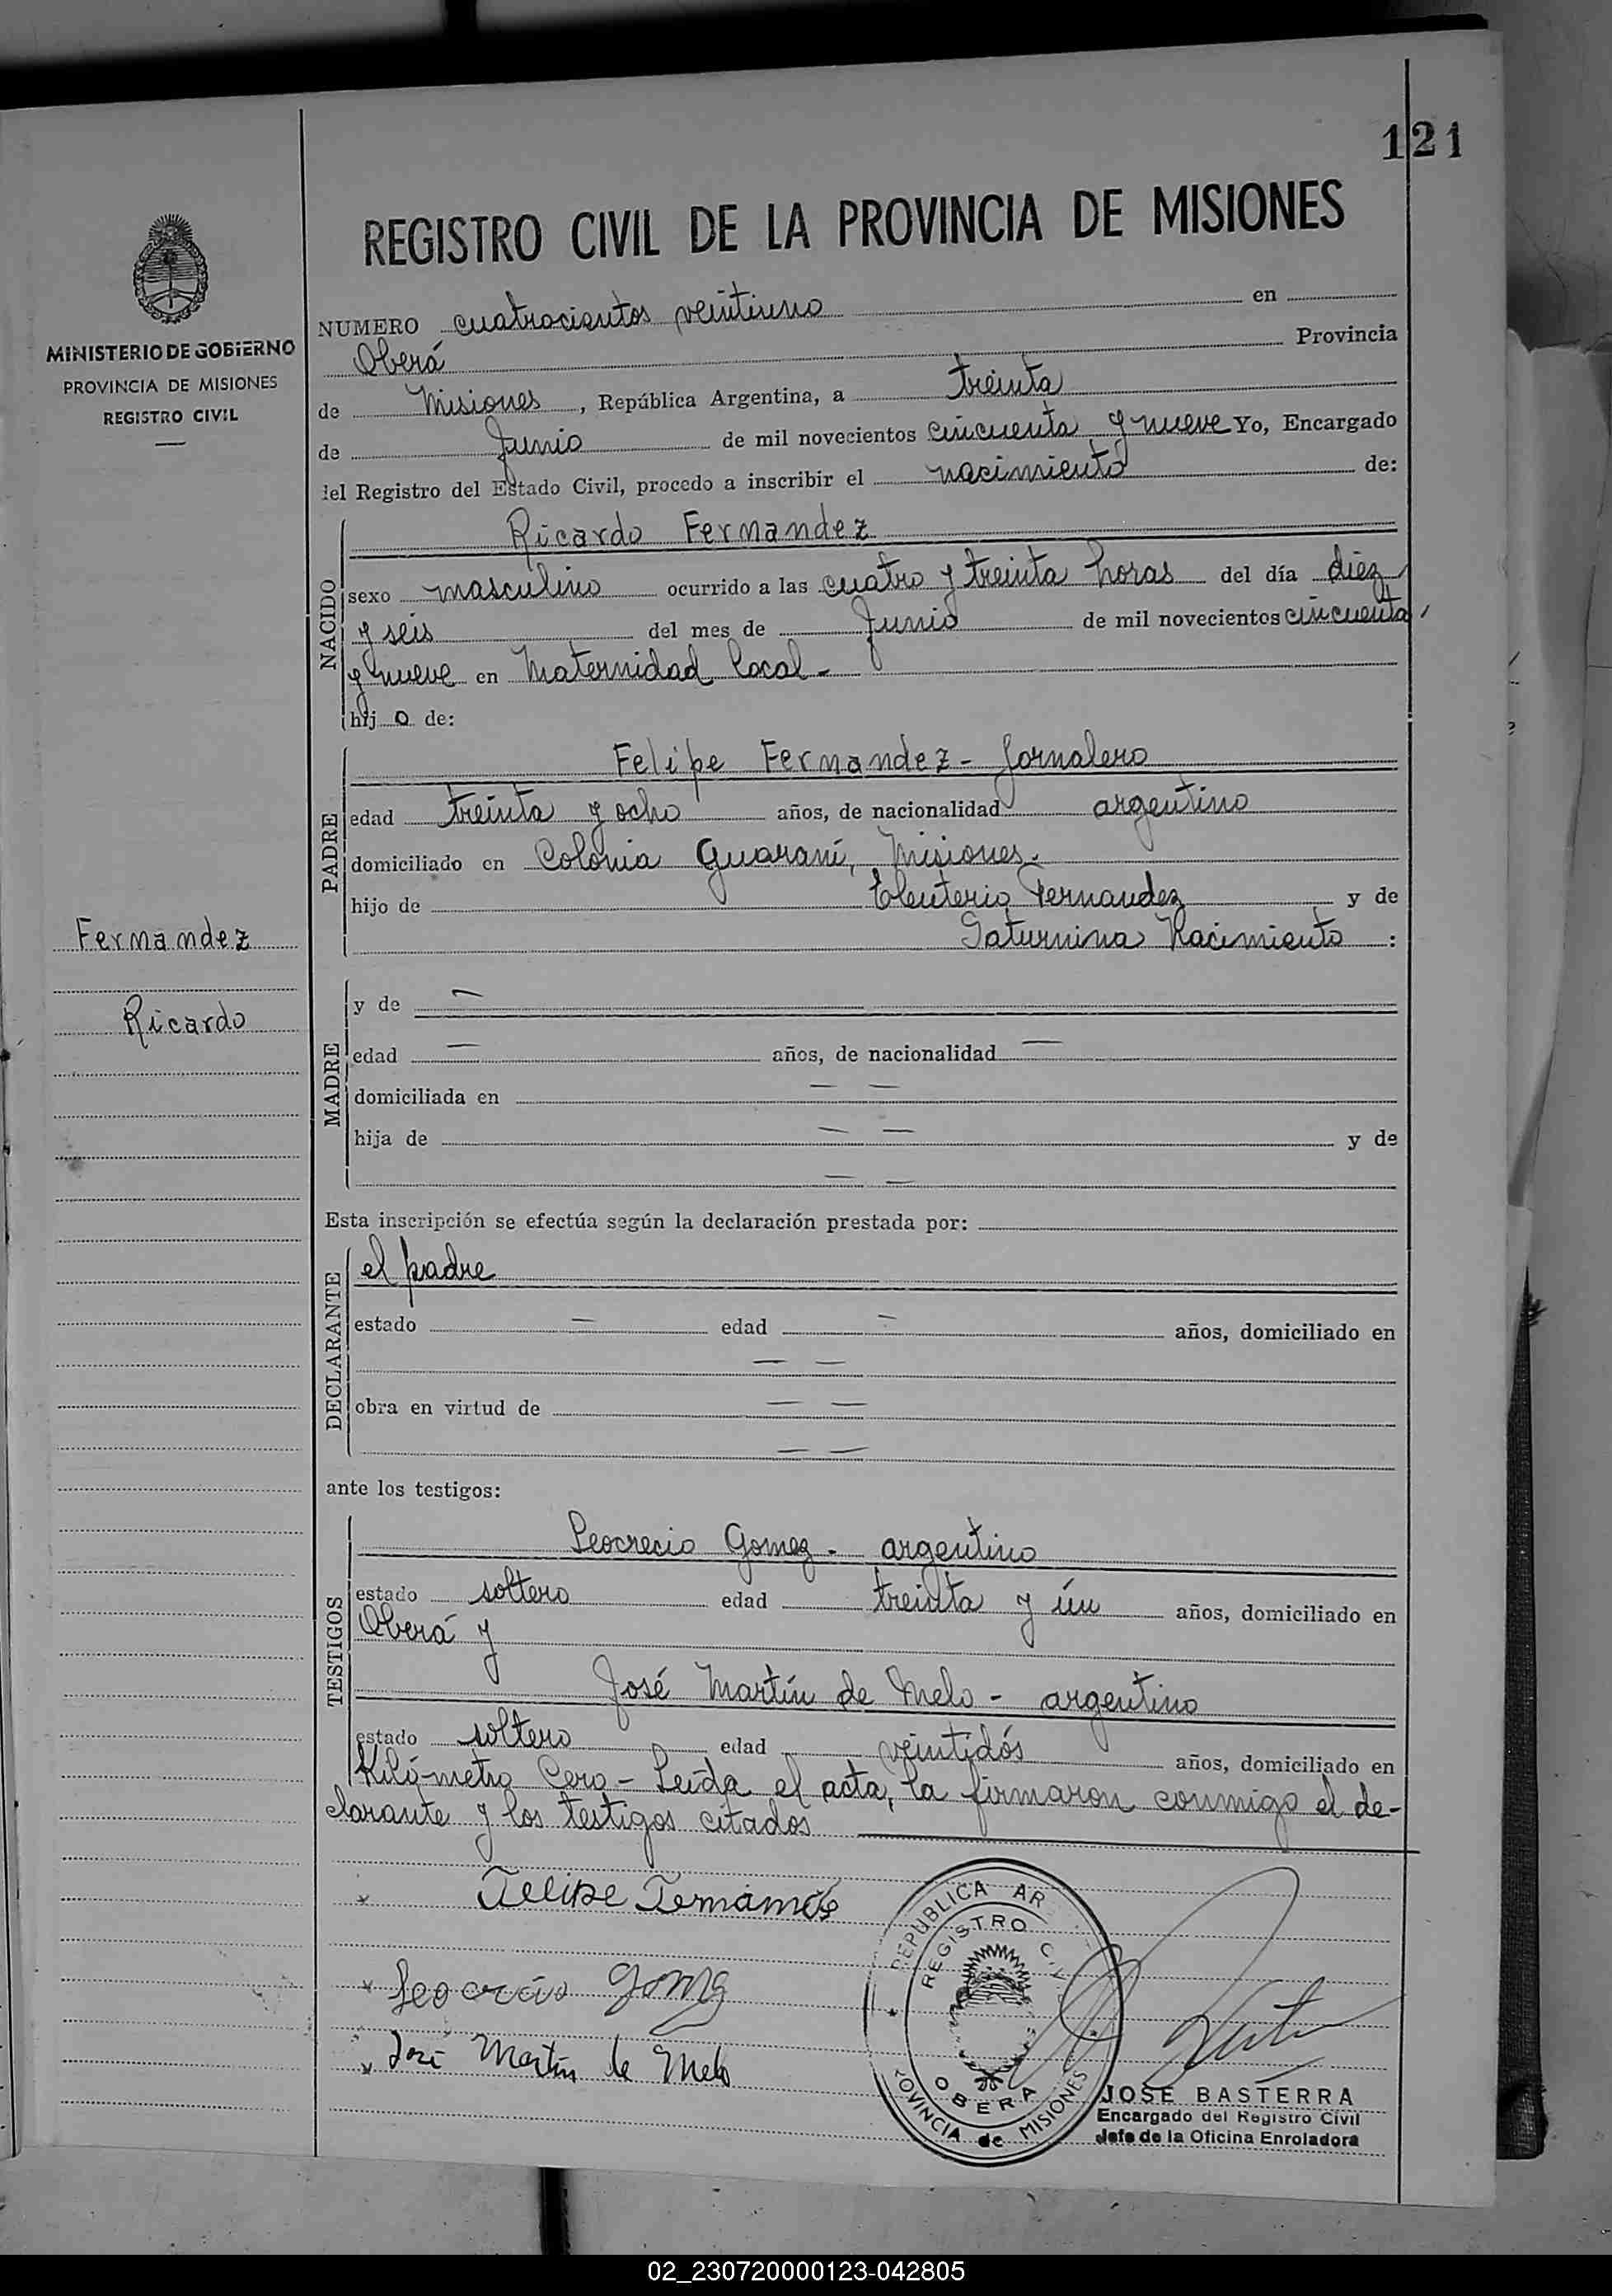 121
REGISTRO CIVIL DE LA PROVINCIA DE MISIONES
MINISTERIO DE GOBIERNO
PROVINCIA DE MISIONES
REGISTRO CIVIL
NUMERO cuatrocientos veintiuno en
Oberá Provincia
de Misiones, República Argentina, a treinta
de Junio de mil novecientos cincuenta y nueve Yo, Encargado
del Registro del Estado Civil, procedo a inscribir el nacimiento de:
NACIDO
Ricardo Fernandez
sexo masculino ocurrido a las cuatro y treinta horas del día diez
y seis del mes de Junio de mil novecientos cincuenta
y nueve en Maternidad local -
hijo de:
PADRE
Felipe Fernandez - Jornalero
edad treinta y ocho años, de nacionalidad argentino
domiciliado en Colonia Guaraní, Misiones.
hijo de Eleuterio Fernandez y de
Saturnina Nacimiento :
Fernandez
Ricardo
MADRE
y de —
edad — años, de nacionalidad —
domiciliada en — —
hija de — — y de
— —
Esta inscripción se efectúa según la declaración prestada por:
DECLARANTE
el padre
estado — edad — años, domiciliado en
— —
obra en virtud de — —
— —
ante los testigos:
TESTIGOS
Leocrecio Gomez - argentino
estado soltero edad treinta y ún años, domiciliado en
Oberá y
José Martín de Melo - argentino
estado soltero edad veintidós años, domiciliado en
Kiló-metro Cero - Leída el acta, la firmaron conmigo el de-
clarante y los testigos citados
Felipe
Gomez
José Martin de Melo
REPUBLICA AR
REGISTRO CIV
OBERA
ROVINCIA de MISIONES
JOSE BASTERRA
Encargado del Registro Civil
Jefe de la Oficina Enroladora
02_230720000123-042805